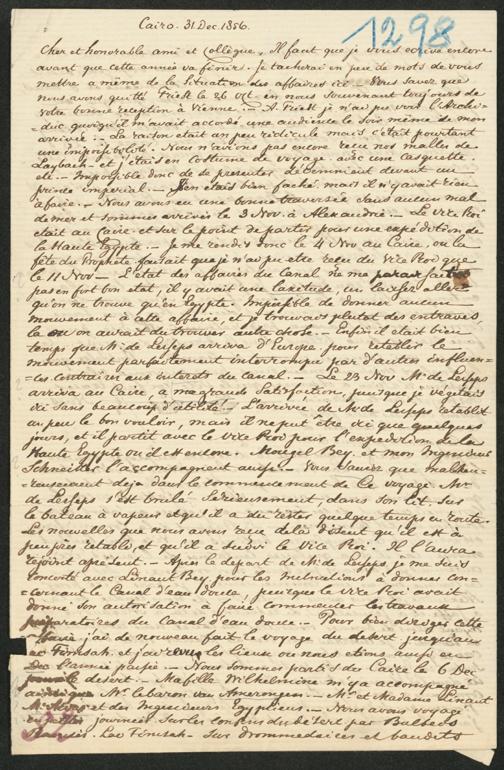 Cairo. 31 Dec. 1856.
1298
Cher et honorable ami et Collègue, Il faut que je vous ecrive encore
avant que cette année va finir. Je tacherai en peu de mots de vous
mettre a même de la Situation des affaires ici. Vous Savez que
nous avons quitté Triest le 26 Oct. en nous Souvenant toujours de
votre bonne reception à Vienne. — A Triest je n'ai pu voir l'Archi-
duc quoiqu'il m'avait accordé une audience le Soir même de mon
arrivée. — La raison etait un peu ridicule mais c'était pourtant
une impossibilité. Nous n'avions pas encore recu nos malles de
Laybach — et j'étais en Costume de voyage avec une Casquette
etc. — Impossible donc de se presenter devant un
prince imperial. — J'en étais bien faché, mais il n'y avait rien
a faire. — Nous avons eu une bonne traversée Sans aucun mal
de mer et Sommes arrivés le 3 Nov. à Alexandrie. — Le Vice Roi
était au Caire et Sur le point de partir pour une expédition de
la Haute Egypte. — Je me rendis donc le 4 Nov au Caire, ou la
fête du Prophete faisait que je n'ai pu etre reçu du Vice Roi que
le 11 Nov — L'état des affaires du Canal ne me
pas en fort bon etat, il y avait une laxitude, un laisser aller
qu'on ne trouve qu'en Egypte. Impossible de donner aucun
mouvement à cette affaire, et je trouvais plutot des entraves
la ou on aurait du trouver autre chose. — Enfin il était bien
temps que Mr. de Lesseps arriva d'Europe, pour retablir le
mouvement parfaitement interrompu par d'autres influen-
ces contraires aux interets du Canal. — Le 23 Nov Mr. de Lesseps
arriva au Caire, a ma grande Satisfaction, puisque je végétais
ici Sans beaucoup d'utilité. — L'arrivée de Mr. de Lesseps retablit
un peu le bon vouloir, mais il ne put être ici que quelques
jours, et il partit avec le Vice Roi pour l'expedition de la
Haute Egypte ou il est encore. Mougel Bey et mon Ingenieur
Schneitter l'accompagnent aussi. — Vous Saurez que malheu-
reusement deja dans le commencement de Ce voyage Mr.
de Lesseps S'est brulé Serieusement, dans Son lit, Sur
le bateau à vapeur et qu'il a du rester quelque temps en route.
Les nouvelles que nous avons recu de la disent qu'il est à
peu près retabli, et qu'il a Suivi le Vice Roi. Il l'aura
rejoint apresent. — Après le depart de Mr. de Lesseps, je me Suis
Concerté avec Linant Bey, pour les Instructions a donner con-
cernant le Canal d'eau douce, puisque le vice Roi avait
donné Son autorisation à faire commencer les travaux
préparatoires du Canal d'eau douce. — Pour bien diriger cette
j'ai de nouveau fait le voyage du desert jusqu'au
Lac Timsah. et j'ai revu les lieux ou nous etions aussi
l'année passée. — Nous Sommes partis du Caire le 6 Dec
desert. — Ma fille Wilhelmine m'y a accompagné
Mr. le baron van Amerongen. — Mr. et Madame Linant
et des Ingenieurs Egyptiens. — Nous avons voyagé
journées. Sur les confins du désert par Bulbeis
Lac Timsah. — Sur dromedaires et baudets